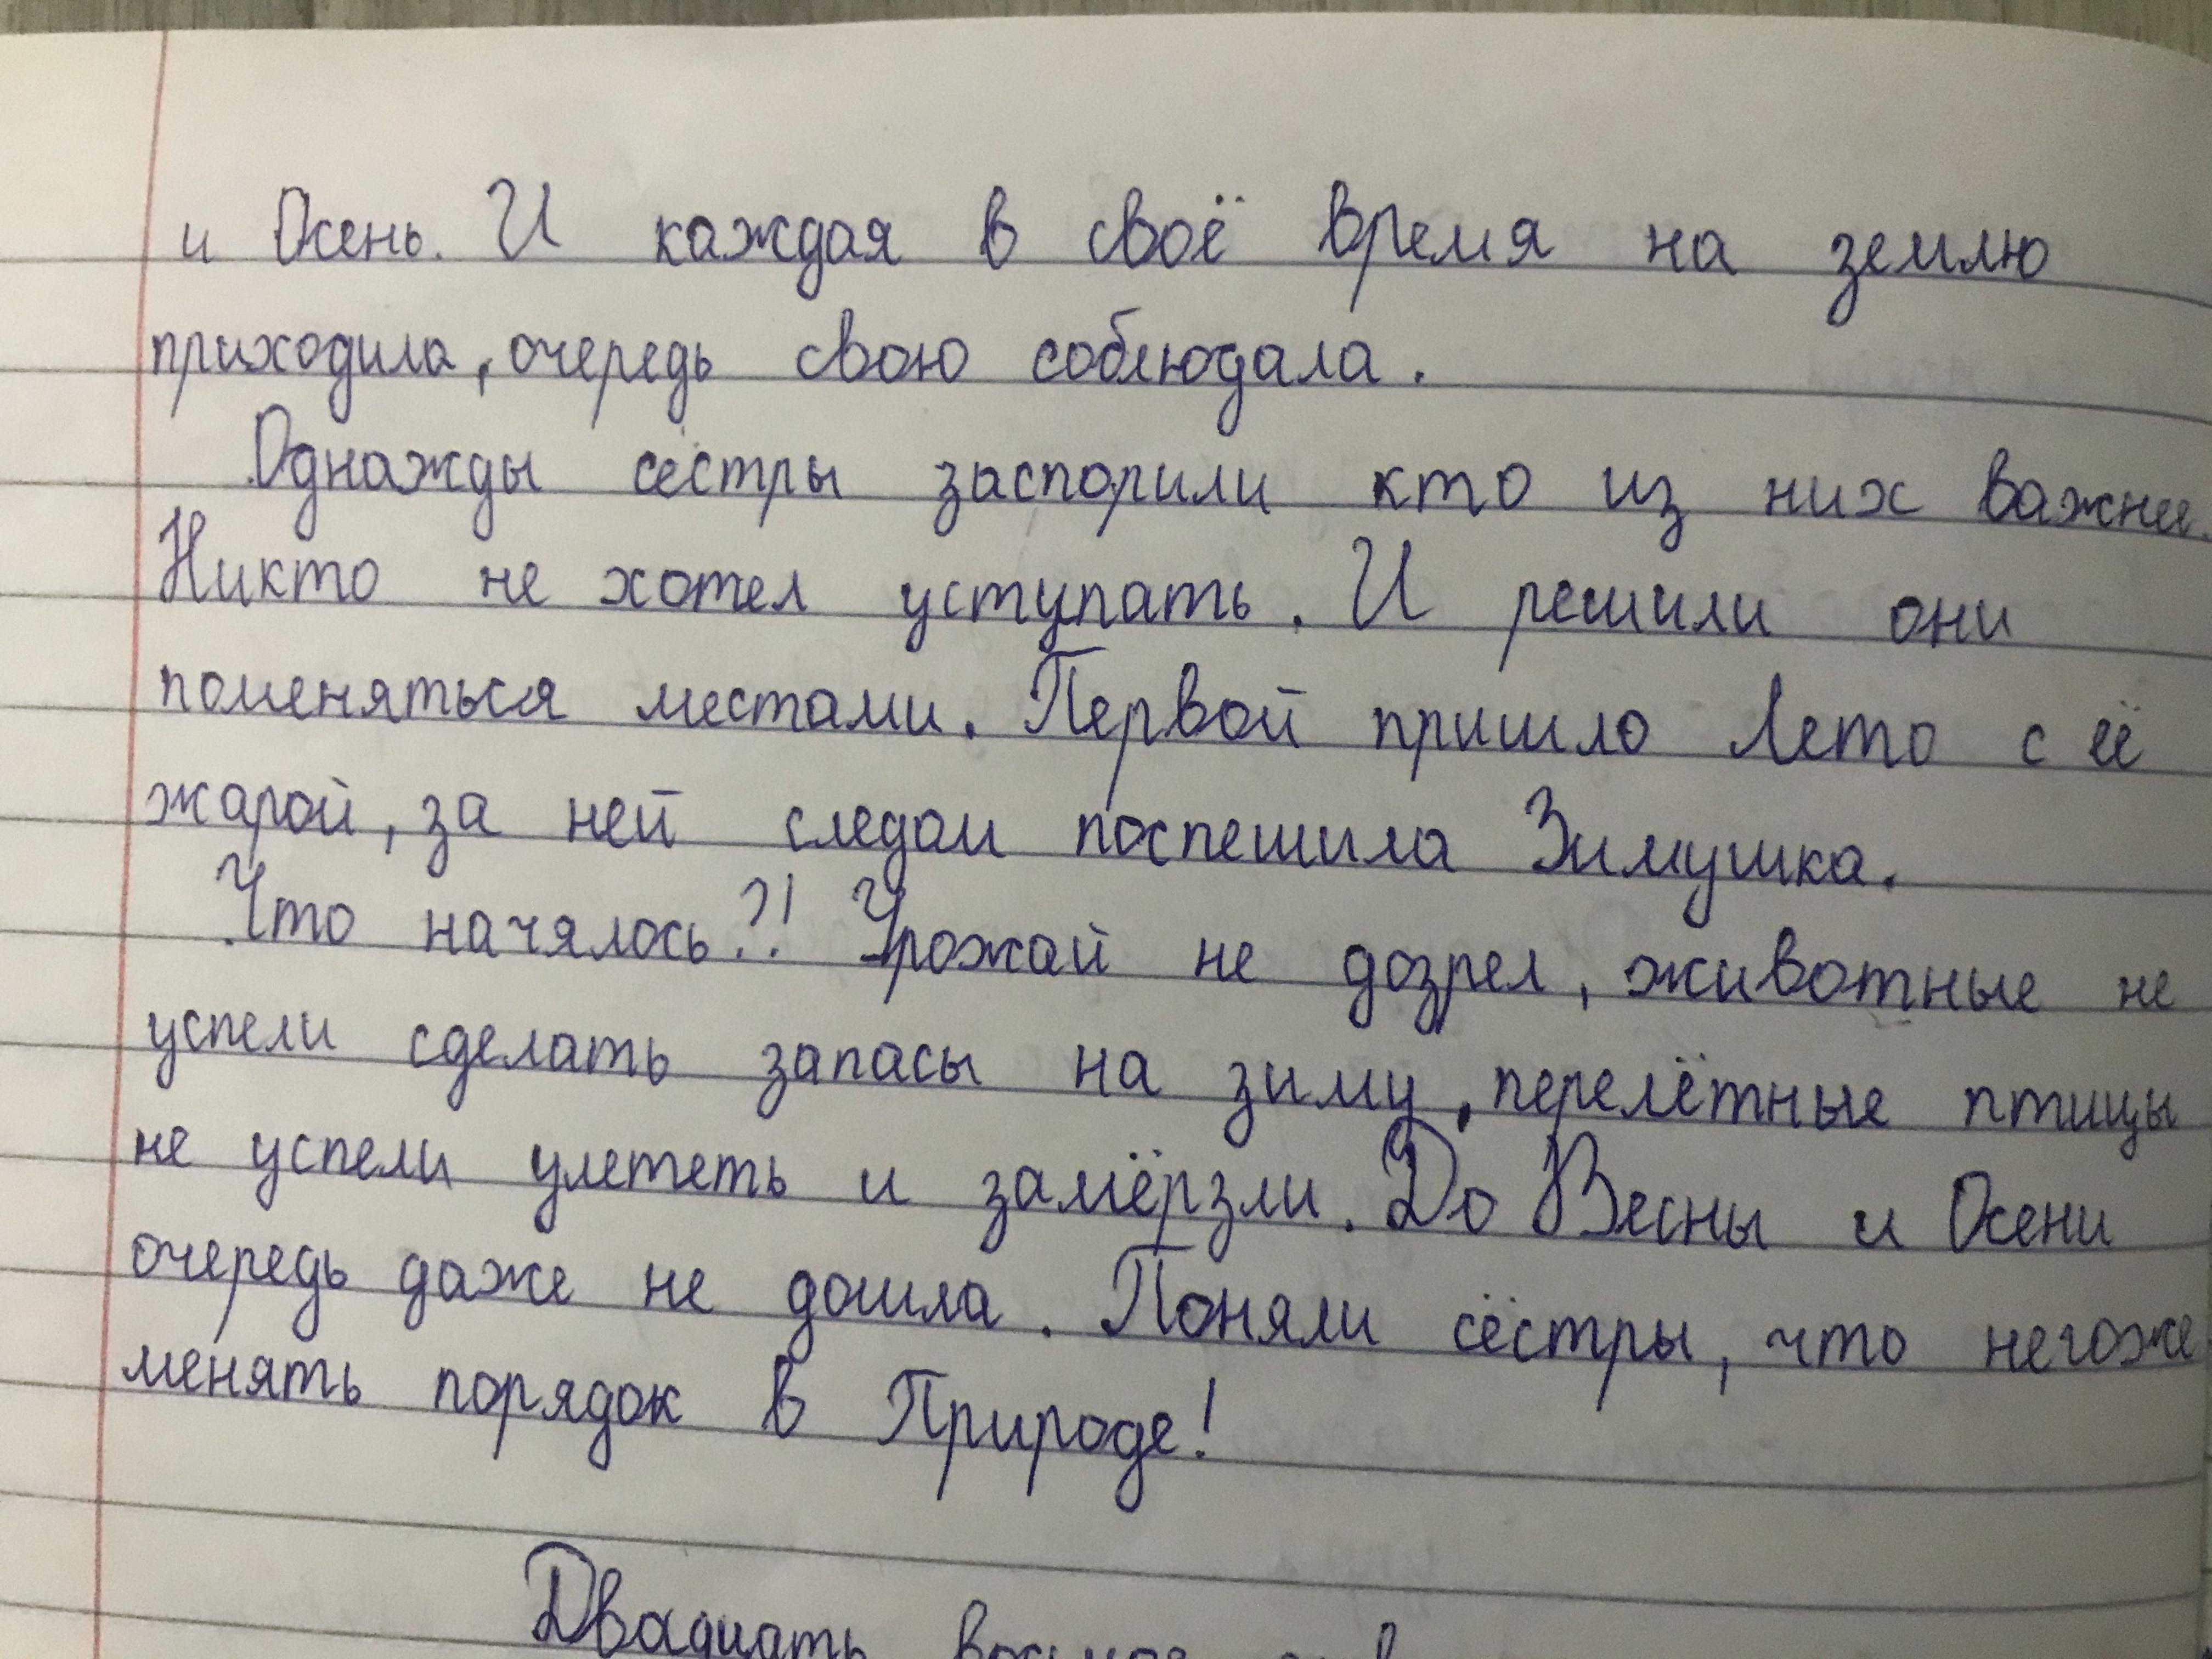 и Осень. И каждая в своё время на землю
приходила, очередь свою соблюдала.
Однажды сёстры заспорили кто из них важнее.
Никто не хотел уступать. И решили они
поменяться местами. Первой пришло Лето с её
жарой, за ней следом поспешила Зимушка.
Что начялось?! Урожай не дозрел, животные не
успели сделать запасы на зиму, перелётные птицы
не успели улететь и замёрзли. До Весны и Осени
очередь даже не дошла. Поняли сёстры, что негоже
менять порядок в Природе!
Двадцать